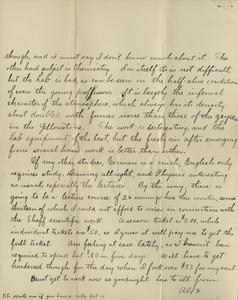 though, and I must say I don't know much about it. The
other hard subject is chemistry. In itself it is not difficult,
but the Lab is bad, as can be seen in the half alive condition
of even the young professors. It is largely the infernal
character of the atmosphere, which always has its density
about doubled with fumes worse than those of the geysers
in the Yellowstone. The work is interesting, and the
lab equipment of the best but the fresh air after emerging
from several hours work is better than either.
Of my other studies, German is a cinch, English only
requires study, Drawing all right, and Physics interesting
as usual, especially the lectures. By the way, there is
going to be a lecture course of 24 evenings here this winter, some
thirteen of which I could not afford to miss in connection with
the Sheff scientific work. A season ticket is $5.00, while
individual tickets are .50, so I guess it will pay me to get the
full ticket. Am feeling at ease lately, as I haven't been
required to spend but .80 in five days. Will have to get
hardened though for the day when I fork over $33 for my
Must get to work now so goodnight. Love to all from
P.S. write me if you have a